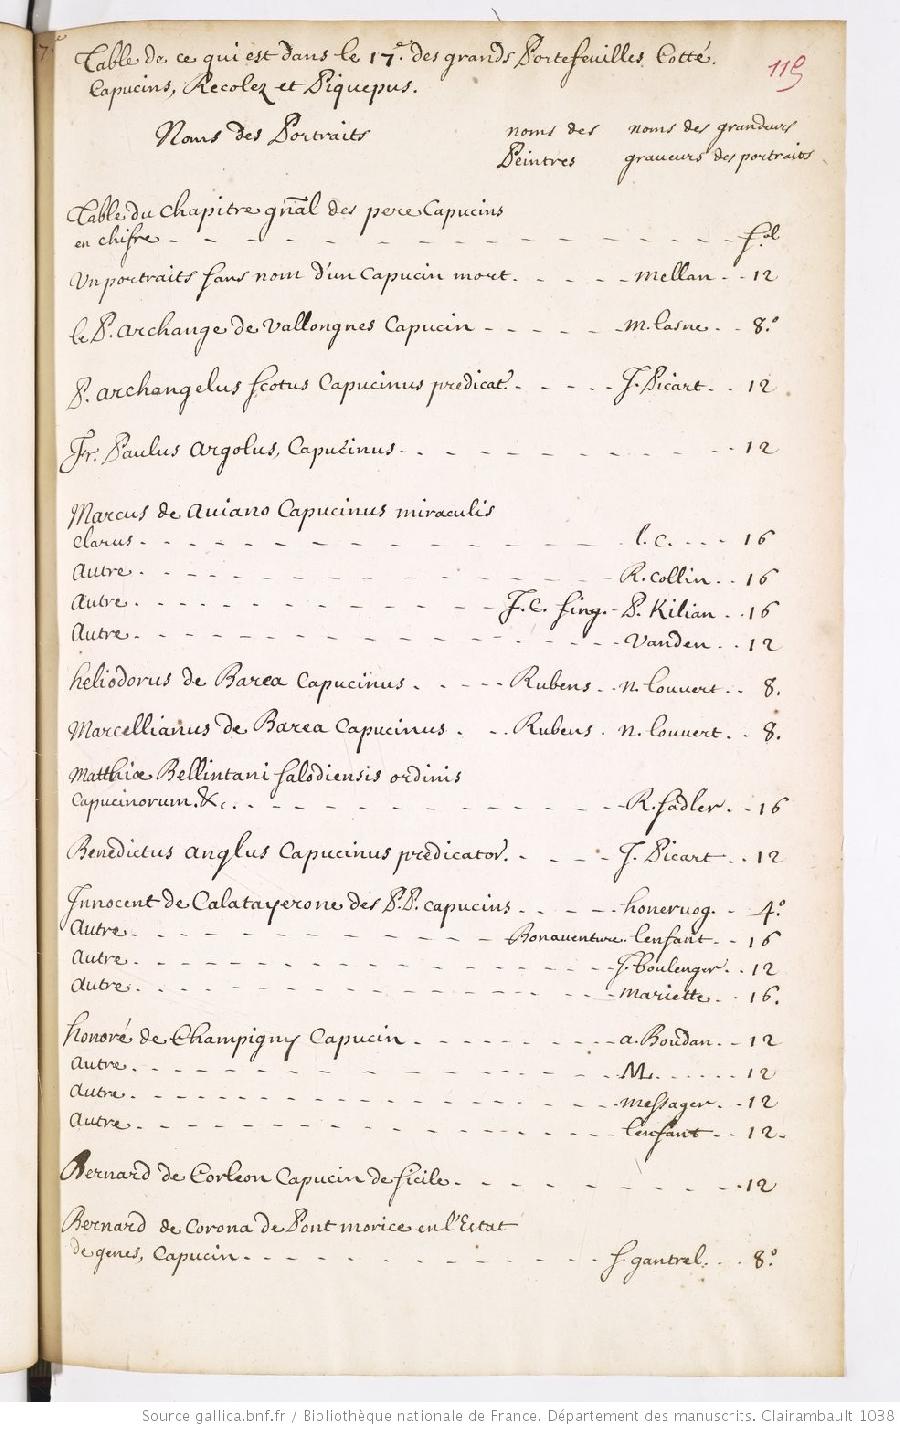 Table de ce qui est dans le 17.e des grands Portefeuilles Cotté.
Capucins, Recolez et Piquepus.
115
Noms des Portraits noms des Peintres noms des graveurs grandeurs des portraits
Table du chapitre gñal des pere Capucins
en chifre - - - - - f.ol
Un portraits sans nom d'un Capucin mort. - - - - mellan - - 12
le P. archange de Vallongnes Capucin - - - - m. lasne - - 8.o
P. archangelus scotus Capucinus predicat.r - - - - J. Picart - - 12
Fr. Paulus argolus, Capucinus - - - - 12
Marcus de Aviano Capucinus miraculis
clarus - - - - l. c. - - - 16
autre - - - - R. collin - - 16
autre - - - - J. C. sing. - P. Kilian - - 16
autre - - - - Vanden - - 12
heliodorus de Barea Capucinus - - - - Rubens - n. louvert - - 8.
Marcellianus de Barea Capucinus - - - Rubens - n. louvert - - 8.
Matthiæ Bellintani salodiensis ordinis
Capucinorum. &c. - - - - R. sadler - - 16
Benedictus anglus Capucinus predicator. - - - - J. Picart - - 12
Innocent de Calatayerone des P.P. capucins - - - - honervog. - - 4.o
autre - - - - Bonaventure lenfant - - 16
autre - - - - J. boulenger - - 12
autre - - - - mariette - - 16.
honoré de Champigny Capucin - - - - a. Boudan - - 12
autre - - - - M. - - - - 12
autre - - - - messager - - 12
autre - - - - lenfant - - 12.
Bernard de Corleon Capucin de sicile - - - - 12
Bernard de Corona de Pont morice en l'Estat
de genes, Capucin - - - - s gantrel - - 8.o
Source gallica.bnf.fr / Bibliothèque nationale de France. Département des manuscrits. Clairambault 1038